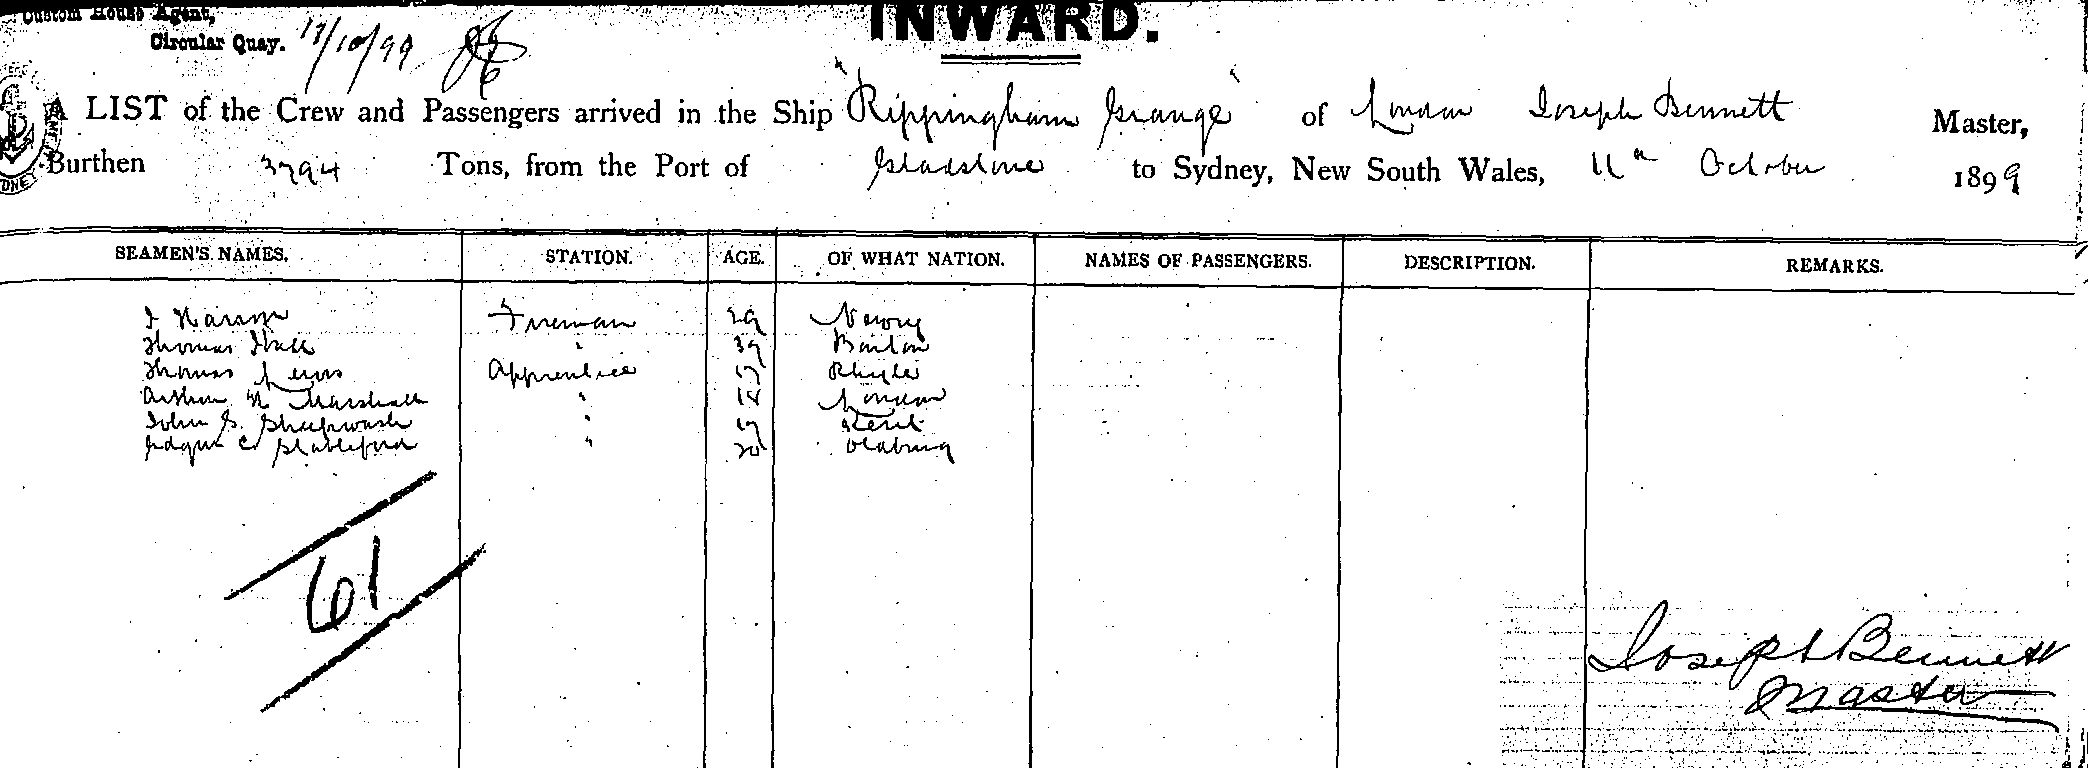 Custom House Agent,
Circular Quay. 17/10/99
INWARD.
A LIST of the Crew and Passengers arrived in the Ship "Rippingham Grange" of London Joseph Bennett Master,
Burthen 3794 Tons, from the Port of Gladstone to Sydney, New South Wales, 11th October 1899
SEAMEN'S NAMES. STATION. AGE. OF WHAT NATION. NAMES OF PASSENGERS. DESCRIPTION. REMARKS.
J Fireman 29 Newry
Thomas Hall " 39
Thomas Lewis Apprentice Rhyle
Arthur N Marshall " London
John G. Sheepwash " Kent
Edgar C. Stableford " 20
61
Joseph Bennett
Master